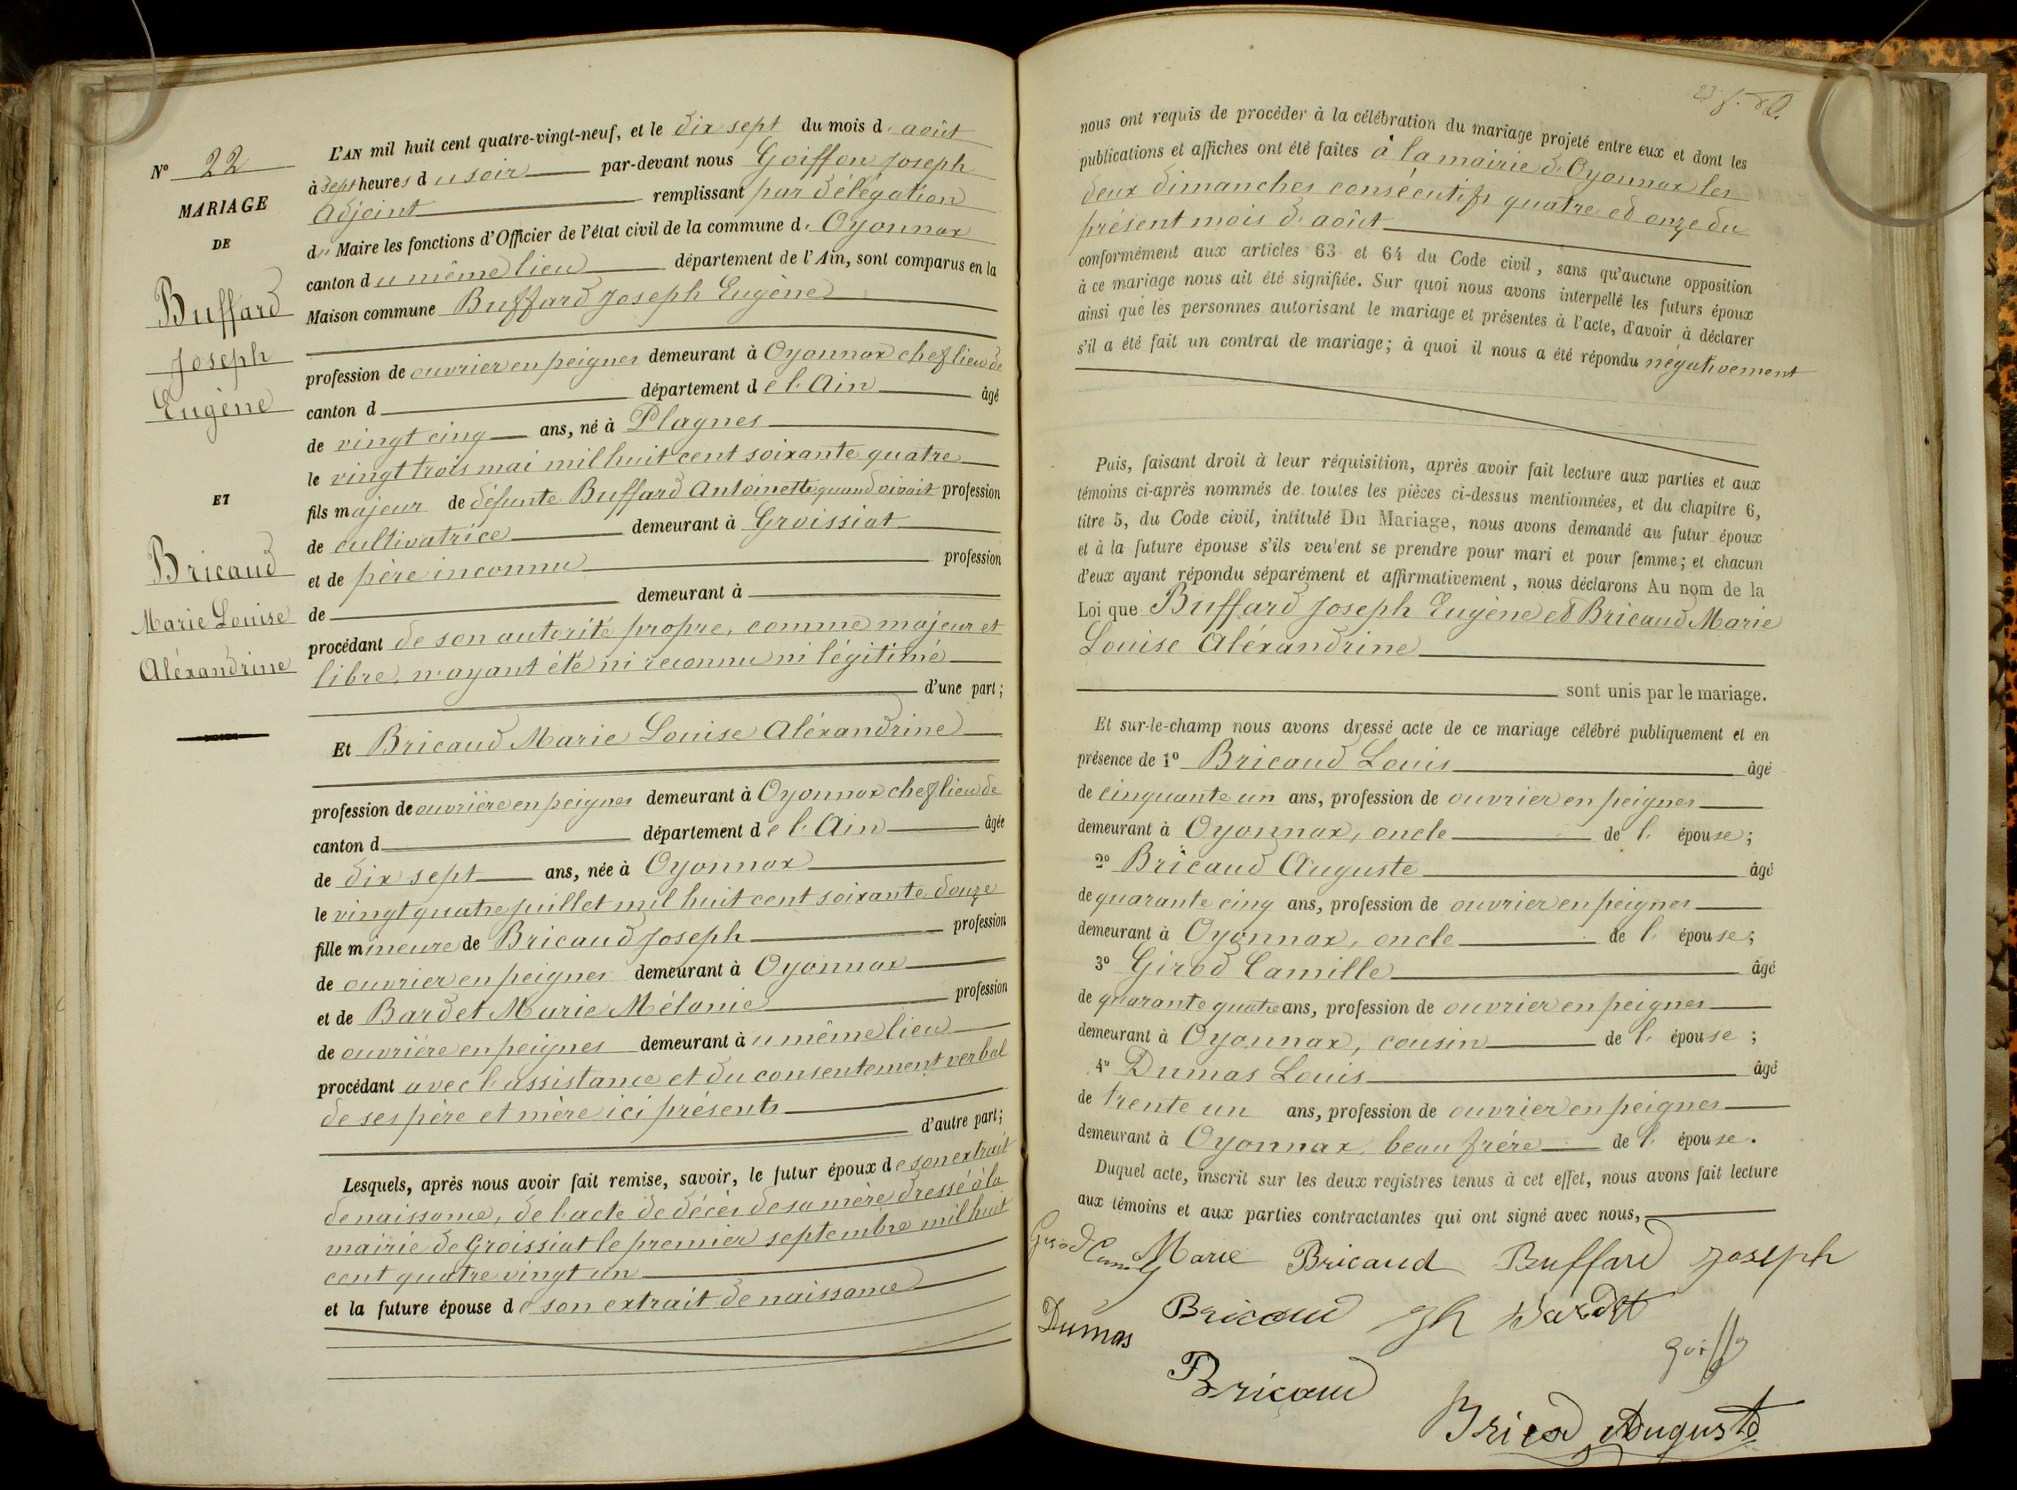 N° 22
MARIAGE
DE
Buffard
Joseph
Eugène
ET
Bricaud
Marie Louise
Aléxandrine
L'AN mil huit cent quatre-vingt-neuf, et le dix sept du mois d' août
à sept heures du soir par-devant nous Goiffon Joseph
Adjoint remplissant par délégation
du Maire les fonctions d'Officier de l'état civil de la commune d' Oyonnax
canton du même lieu département de l'Ain, sont comparus en la
Maison commune Buffard Joseph Eugène
profession de ouvrier en peignes demeurant à Oyonnax chef lieu de
canton d département de l'Ain âgé
de vingt cinq ans, né à Plagnes
le vingt trois mai mil huit cent soixante quatre
fils majeur de défunte Buffard Antoinette quand vivait profession
de cultivatrice demeurant à Groissiat
et de père inconnu profession
de demeurant à
procédant de son autorité propre, comme majeur et
libre, n'ayant été ni reconnu ni légitimé
d'une part;
Et Bricaud Marie Louise Aléxandrine
profession de ouvrière en peignes demeurant à Oyonnax chef lieu de
canton d département de l'Ain âgée
de dix sept ans, née à Oyonnax
le vingt quatre juillet mil huit cent soixante douze
fille mineure de Bricaud Joseph profession
de ouvrier en peignes demeurant à Oyonnax
et de Bardet Marie Mélanie profession
de ouvrière en peignes demeurant au même lieu
procédant avec l'assistance et du consentement verbal
de ses père et mère ici présents
d'autre part;
Lesquels, après nous avoir fait remise, savoir, le futur époux de son extrait
de naissance, de l'acte de décès de sa mère dressé à la
mairie de Groissiat le premier septembre mil huit
cent quatre vingt un
et la future épouse de son extrait de naissance
nous ont requis de procéder à la célébration du mariage projeté entre eux et dont les
publications et affiches ont été faites à la mairie d'Oyonnax les
deux dimanches consécutifs quatre et onze du
présent mois d'août
conformément aux articles 63 et 64 du Code civil, sans qu'aucune opposition
à ce mariage nous ait été signifiée. Sur quoi nous avons interpellé les futurs époux
ainsi que les personnes autorisant le mariage et présentes à l'acte, d'avoir à déclarer
s'il a été fait un contrat de mariage; à quoi il nous a été répondu négativement
Puis, faisant droit à leur réquisition, après avoir fait lecture aux parties et aux
témoins ci-après nommés de toutes les pièces ci-dessus mentionnées, et du chapitre 6,
titre 5, du Code civil, intitulé Du Mariage, nous avons demandé au futur époux
et à la future épouse s'ils veulent se prendre pour mari et pour femme; et chacun
d'eux ayant répondu séparément et affirmativement, nous déclarons Au nom de la
Loi que Buffard Joseph Eugène et Bricaud Marie
Louise Aléxandrine
sont unis par le mariage.
Et sur-le-champ nous avons dressé acte de ce mariage célébré publiquement et en
présence de 1° Bricaud Louis âgé
de cinquante un ans, profession de ouvrier en peignes
demeurant à Oyonnax, oncle de l' épouse;
2° Bricaud Auguste âgé
de quarante cinq ans, profession de ouvrier en peignes
demeurant à Oyonnax, oncle de l' épouse;
3° Girod Camille âgé
de quarante quatre ans, profession de ouvrier en peignes
demeurant à Oyonnax, cousin de l' épouse;
4° Dumas Louis âgé
de trente un ans, profession de ouvrier en peignes
demeurant à Oyonnax, beau frère de l' épouse.
Duquel acte, inscrit sur les deux registres tenus à cet effet, nous avons fait lecture
aux témoins et aux parties contractantes qui ont signé avec nous,
Girod Marie Bricaud Buffard Joseph
Dumas Bricaud Jh Bardet
Bricaud
Auguste